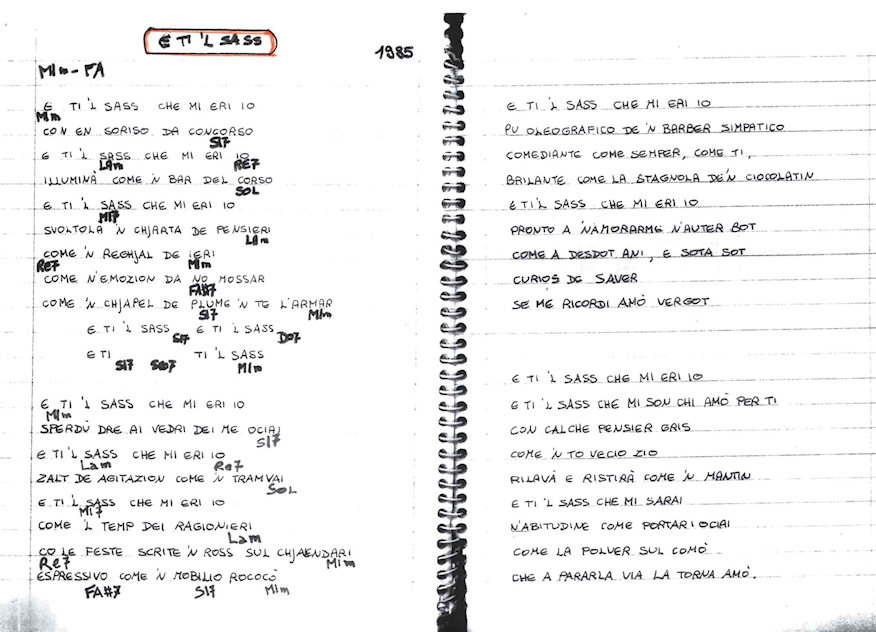 E TI 'L SASS
1985
MIm - FA
E TI 'L SASS CHE MI ERI IO
MIm
CON EN SORISO DA CONCORSO
SI7
E TI 'L SASS CHE MI ERI IO
LAm RE7
ILLUMINÀ COME 'N BAR DEL CORSO
SOL
E TI 'L SASS CHE MI ERI IO
MI7
SVOLTOLA 'N CHJARTA DE PENSIERI
LAm
COME 'N REGHJAL DE IERI
Re7 MIm
COME N'EMOZION DA NO MOSSAR
FA#7
COME 'N CHJAPEL DE PLUME 'N TE L'ARMAR
SI7 MIm
E TI 'L SASS E TI 'L SASS
SI7 DO7
E TI TI 'L SASS
SI7 MIm
E TI 'L SASS CHE MI ERI IO
MIm
SPERDÙ DRE AI VEDRI DEI ME OCIAI
SI7
E TI 'L SASS CHE MI ERI IO
Lam Re7
ZALT DE AGITAZION COME 'N TRAMVAI
SOL
E TI 'L SASS CHE MI ERI IO
MI7
COME 'L TEMP DEI RAGIONIERI
Lam
CO LE FESTE SCRITE 'N ROSS SUL CHJAENDARI
Re7 MIm
ESPRESSIVO COME 'N MOBILIO ROCOCÒ
FA#7 SI7 MIm
E TI 'L SASS CHE MI ERI IO
PU OLEOGRAFICO DE 'N BARBER SIMPATICO
COMEDIANTE COME SEMPER, COME TI,
BRILANTE COME LA STAGNOLA DE'N CIOCOLATIN
E TI 'L SASS CHE MI ERI IO
PRONTO A 'NAMORARME N'AUTER BOT
COME A DESDOT ANI, E SOTA SOT
CURIOS DE SAVER
SE ME RICORDI AMÒ VERGOT
E TI 'L SASS CHE MI ERI IO
E TI 'L SASS CHE MI SON CHI AMÒ PER TI
CON CALCHE PENSIER GRIS
COME 'N TO VECIO ZIO
RILAVÀ E RISTIRÀ COME 'N MANTIN
E TI 'L SASS CHE MI SARAI
N'ABITUDINE COME PORTAR I OCIAI
COME LA POLVER SUL COMÒ
CHE A PARARLA VIA LA TORNA AMÒ.